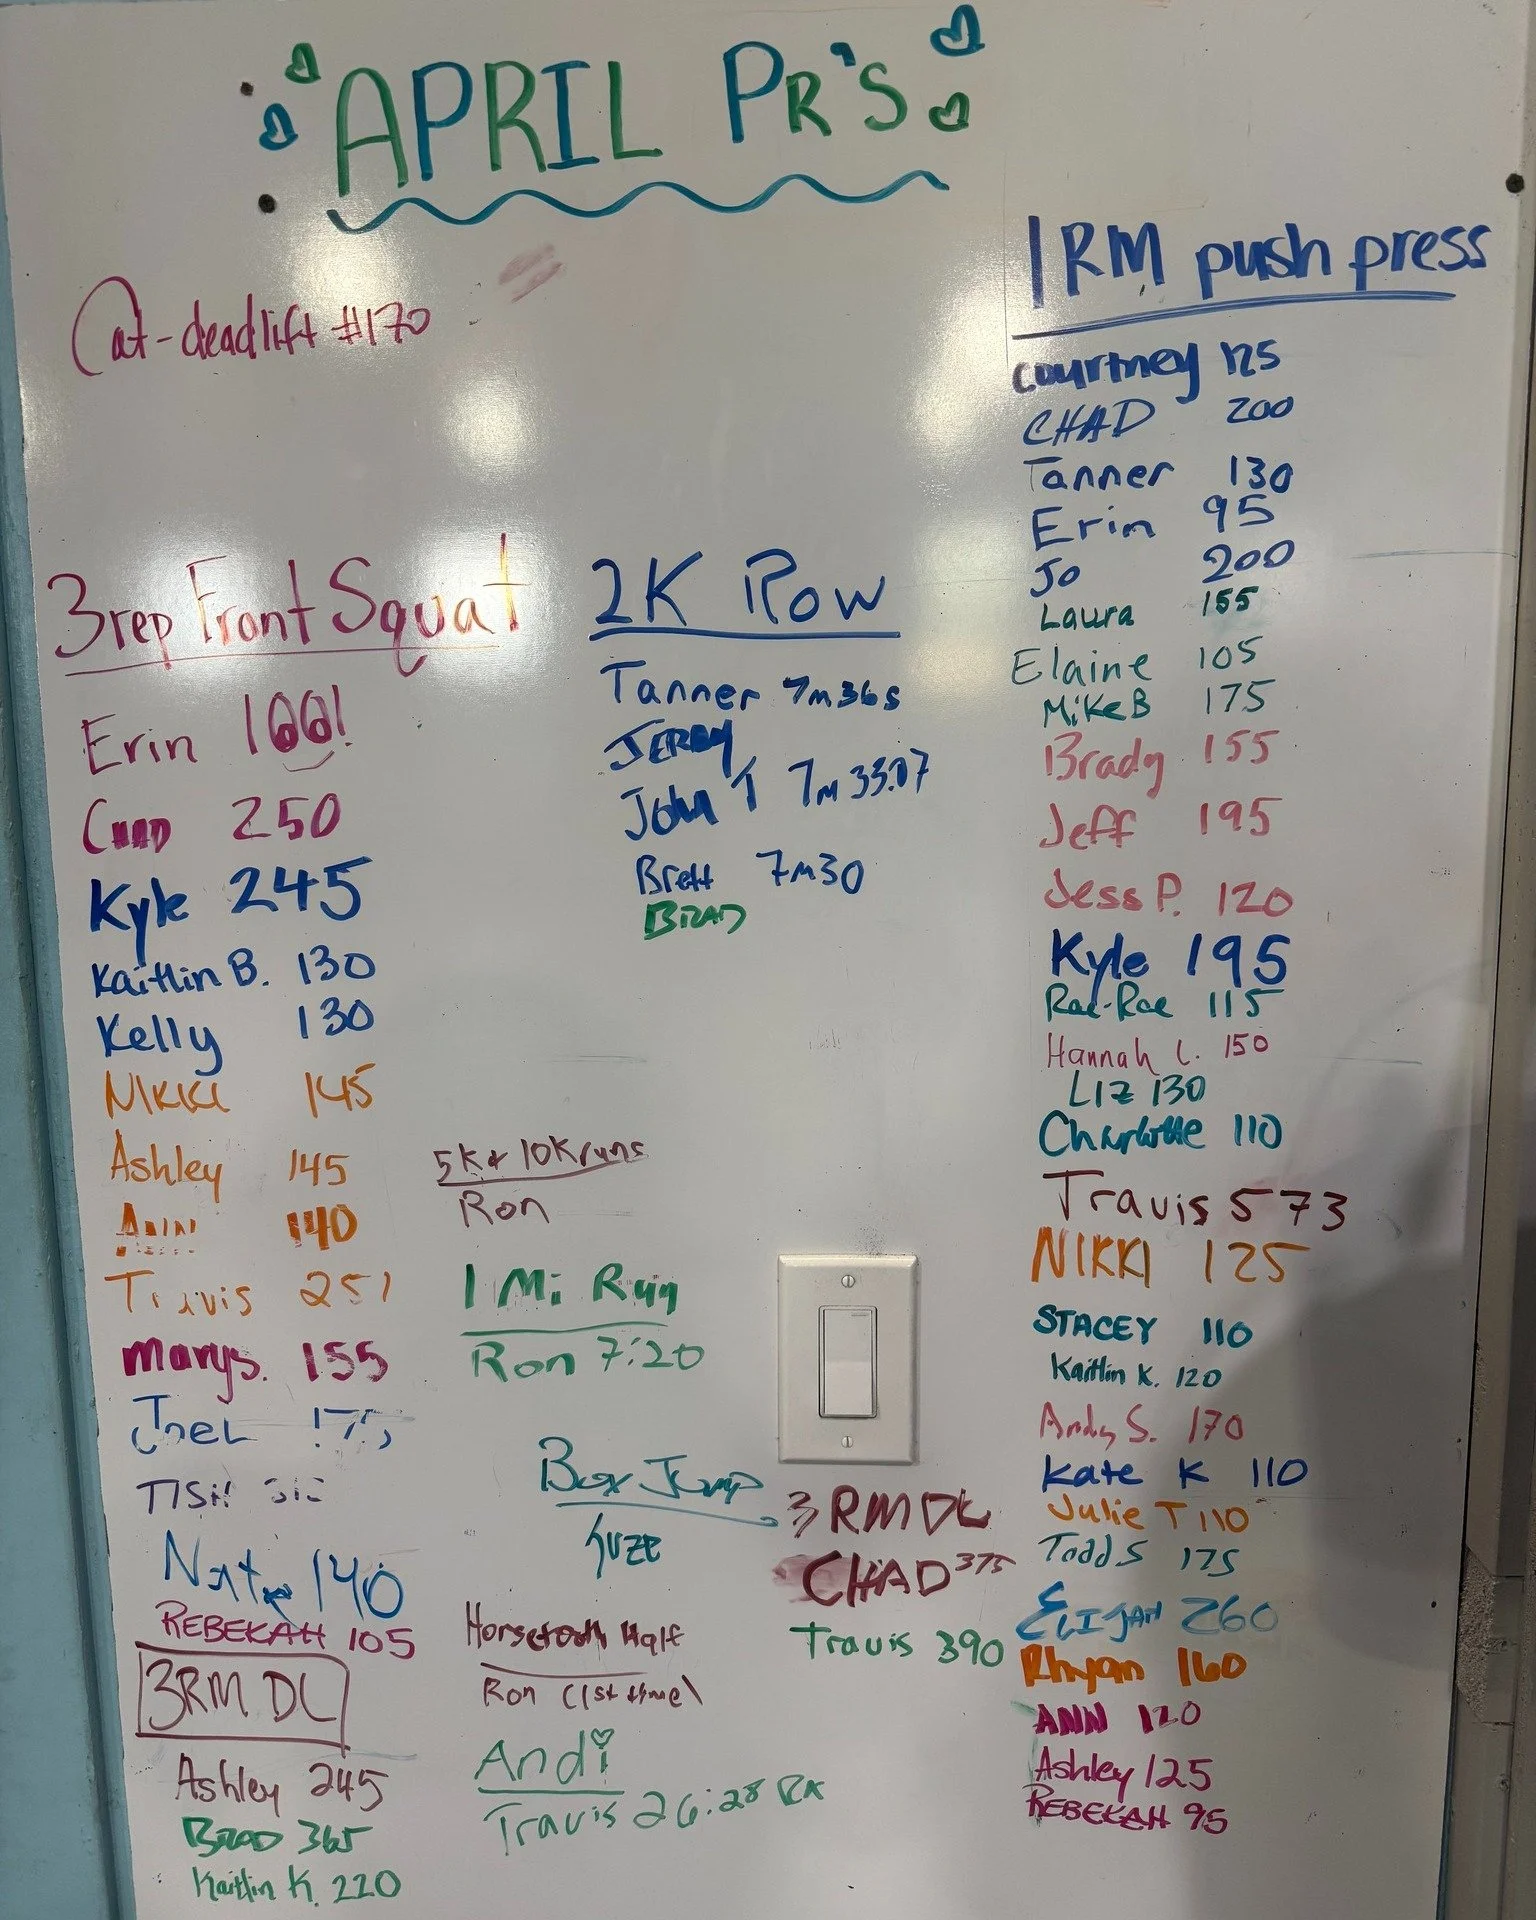 APRIL PR'S
Cat-deadlift #170
3rep Front Squat
Erin 100!
CHAD 250
Kyle 245
Kaitlin B. 130
Kelly 130
NIKKI 145
Ashley 145
ANN 140
Travis 251
Marys. 155
JOEL
TISH
140
REBEKAH 105
3RM DL
Ashley 245
BRAD 365
Kaitlin K. 220
2K Row
Tanner 7m36s
JERRY
John T 7m 33.07
Brett 7m30
BRAD
5K & 10K runs
Ron
1 Mi Run
Ron 7:20
Box Jump
Suze
Horsetooth Half
Ron (1st time)
Andi
Travis 26:28 RX
3RM DL
CHAD 375
Travis 390
1RM push press
Courtney 125
CHAD 200
Tanner 130
Erin 95
Jo 200
Laura 155
Elaine 105
Mike B 175
Brady 155
Jeff 195
Jess P. 120
Kyle 195
Rae-Rae 115
Hannah L. 150
LIZ 130
Charlotte 110
Travis 573
NIKKI 125
STACEY 110
Kaitlin K. 120
Andy S. 170
Kate K 110
Julie T 110
Todd S 175
ELIJAH 260
Rhyan 160
ANN 120
Ashley 125
REBEKAH 95